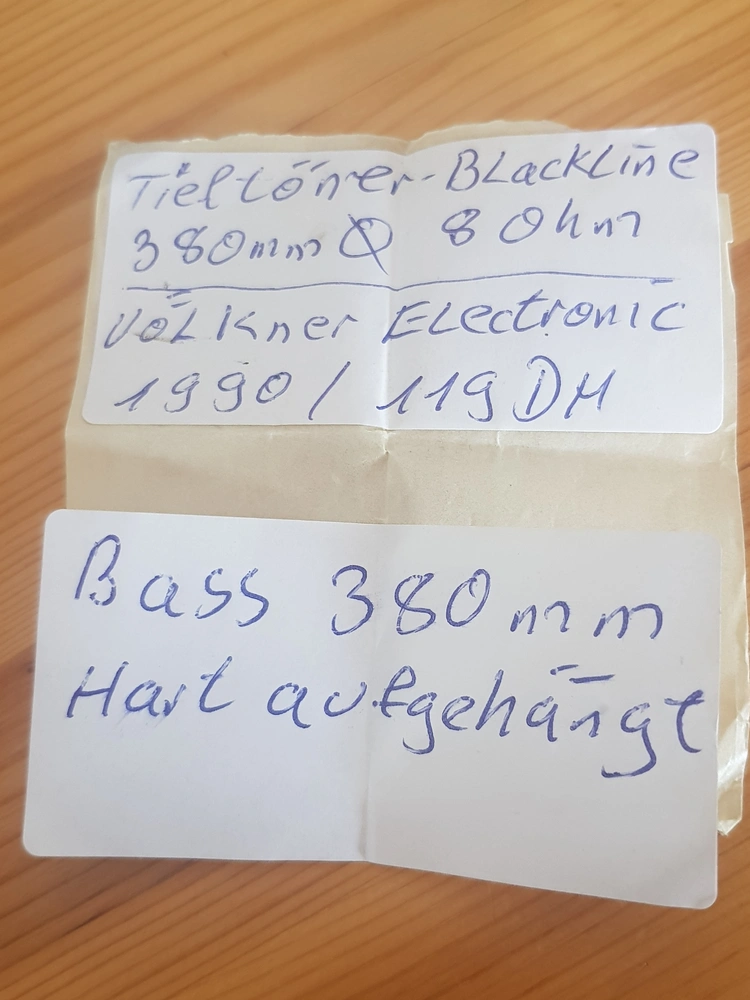 Tieftöner-Blackline
380mm Ø 8 Ohm
Völkner Electronic
1990/119 DM
Bass 380mm
Hart aufgehängt